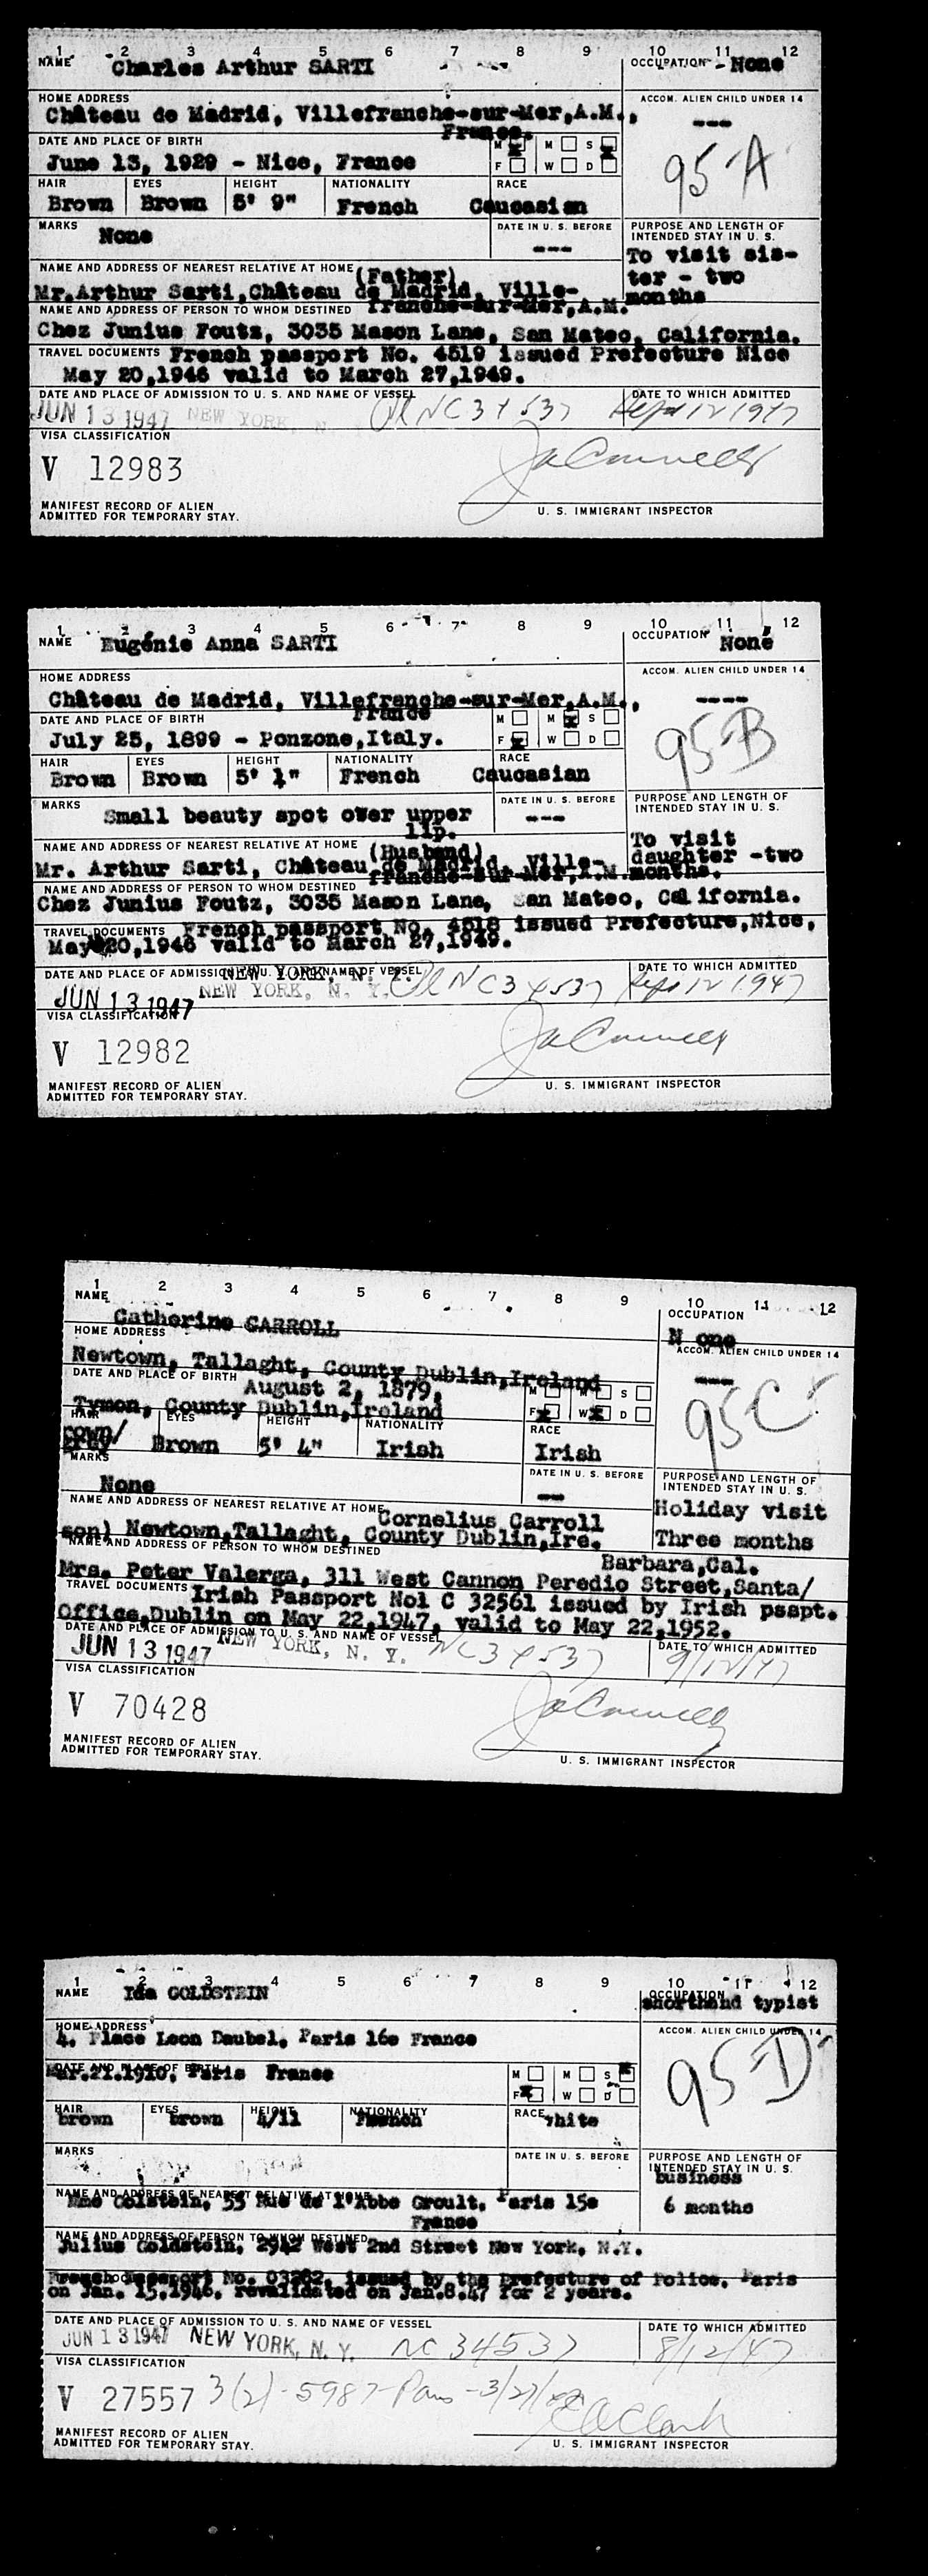 1 2 3 4 5 6 7 8 9 10 11 12
NAME Charles Arthur SARTI OCCUPATION - None
HOME ADDRESS ACCOM. ALIEN CHILD UNDER 14
Château de Madrid, Villefranche-sur-Mer,A.M., ---
France.
DATE AND PLACE OF BIRTH M M S
June 13, 1929 - Nice, France F W D 95-A
HAIR EYES HEIGHT NATIONALITY RACE
Brown Brown 5' 9" French Caucasian
MARKS None DATE IN U. S. BEFORE PURPOSE AND LENGTH OF
--- INTENDED STAY IN U. S.
To visit sis-
ter - two
months
NAME AND ADDRESS OF NEAREST RELATIVE AT HOME (Father)
Mr.Arthur Sarti,Château de Madrid, Ville-
franche-sur-Mer,A.M.
NAME AND ADDRESS OF PERSON TO WHOM DESTINED
Chez Junius Foutz, 3035 Mason Lane, San Mateo, California.
TRAVEL DOCUMENTS French passport No. 4519 issued Prefecture Nice
May 20,1946 valid to March 27,1949.
DATE AND PLACE OF ADMISSION TO U. S. AND NAME OF VESSEL DATE TO WHICH ADMITTED
JUN 13 1947 NEW YORK, N. NC 34537 Sept 12 1947
VISA CLASSIFICATION
V 12983
MANIFEST RECORD OF ALIEN
ADMITTED FOR TEMPORARY STAY. U. S. IMMIGRANT INSPECTOR
1 2 3 4 5 6 7 8 9 10 11 12
NAME Eugénie Anna SARTI OCCUPATION None
HOME ADDRESS ACCOM. ALIEN CHILD UNDER 14
Château de Madrid, Villefranche-sur-Mer,A.M., ----
France
DATE AND PLACE OF BIRTH M M S
July 25, 1899 - Ponzone,Italy. F W D 95-B
HAIR EYES HEIGHT NATIONALITY RACE
Brown Brown 5' 1" French Caucasian
MARKS Small beauty spot over upper
lip.
DATE IN U. S. BEFORE PURPOSE AND LENGTH OF
--- INTENDED STAY IN U. S.
To visit
daughter -two
months.
NAME AND ADDRESS OF NEAREST RELATIVE AT HOME (Husband)
Mr. Arthur Sarti, Château de Madrid, Ville-
franche-sur-Mer,A.M.
NAME AND ADDRESS OF PERSON TO WHOM DESTINED
Chez Junius Foutz, 3035 Mason Lane, San Mateo, California.
TRAVEL DOCUMENTS French passport No. 4518 issued Prefecture,Nice,
May 20,1946 valid to March 27,1949.
DATE AND PLACE OF ADMISSION TO U. S. AND NAME OF VESSEL DATE TO WHICH ADMITTED
NEW YORK, N. Y.
JUN 13 1947 NEW YORK, N. Y. NC 34537 Sept 12 1947
VISA CLASSIFICATION
V 12982
MANIFEST RECORD OF ALIEN
ADMITTED FOR TEMPORARY STAY. U. S. IMMIGRANT INSPECTOR
1 2 3 4 5 6 7 8 9 10 11 12
NAME Catherine CARROLL OCCUPATION
N one
HOME ADDRESS ACCOM. ALIEN CHILD UNDER 14
Newtown, Tallaght, County Dublin,Ireland ---
DATE AND PLACE OF BIRTH August 2, 1879, M M S
Tymon, County Dublin,Ireland F W D 95C
HAIR EYES HEIGHT NATIONALITY RACE
rown/
grey Brown 5' 4" Irish Irish
MARKS None DATE IN U. S. BEFORE PURPOSE AND LENGTH OF
-- INTENDED STAY IN U. S.
Holiday visit
Three months
NAME AND ADDRESS OF NEAREST RELATIVE AT HOME Cornelius Carroll
son) Newtown,Tallaght, County Dublin,Ire.
NAME AND ADDRESS OF PERSON TO WHOM DESTINED Barbara,Cal.
Mrs. Peter Valerga, 311 West Cannon Peredio Street,Santa/
TRAVEL DOCUMENTS Irish Passport No1 C 32561 issued by Irish psspt.
Office,Dublin on May 22,1947, valid to May 22,1952.
DATE AND PLACE OF ADMISSION TO U. S. AND NAME OF VESSEL DATE TO WHICH ADMITTED
JUN 13 1947 NEW YORK, N. Y. NC 34537 9/12/47
VISA CLASSIFICATION
V 70428
MANIFEST RECORD OF ALIEN
ADMITTED FOR TEMPORARY STAY. U. S. IMMIGRANT INSPECTOR
1 2 3 4 5 6 7 8 9 10 11 12
NAME Ida GOLDSTEIN OCCUPATION
shorthand typist
HOME ADDRESS ACCOM. ALIEN CHILD UNDER 14
4, Place Leon Deubel, Paris 16e France
DATE AND PLACE OF BIRTH M M S
Mar.21.1910, Paris France F W D 95-D
HAIR EYES HEIGHT NATIONALITY RACE
brown brown 4/11 French white
MARKS DATE IN U. S. BEFORE PURPOSE AND LENGTH OF
INTENDED STAY IN U. S.
business
6 months
NAME AND ADDRESS OF NEAREST RELATIVE AT HOME
Mme Golstein, 55 Rue de l'Abbe Groult, Paris 15e
France
NAME AND ADDRESS OF PERSON TO WHOM DESTINED
Julius Goldstein, 2942 West 2nd Street New York, N.Y.
French Passport No. 03262, issued by the Prefecture of Police, Paris
on Jan. 15.1946, revalidated on Jan.8.47 for 2 years.
DATE AND PLACE OF ADMISSION TO U. S. AND NAME OF VESSEL DATE TO WHICH ADMITTED
JUN 13 1947 NEW YORK, N. Y. NC 34537 8/12/47
VISA CLASSIFICATION
V 27557 3(2)-5987-Paris-3/27/
MANIFEST RECORD OF ALIEN
ADMITTED FOR TEMPORARY STAY. U. S. IMMIGRANT INSPECTOR